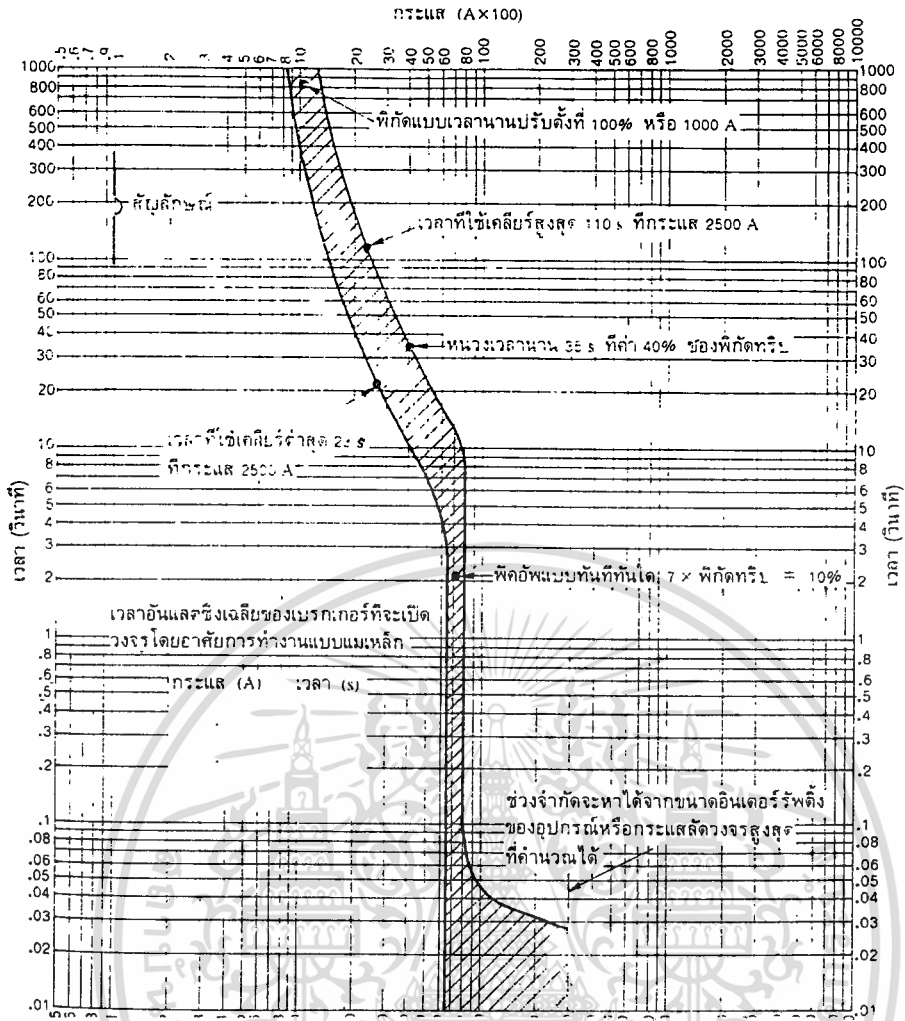 กระแส (A×100)
.5 .6 .7 .8 .9 1 2 3 4 5 6 7 8 9 10 20 30 40 50 60 80 100 200 300 400 600 800 1000 2000 3000 4000 5000 6000 10000
1000 800 600 500 400 300 200 100 80 60 50 40 30 20 10 8 6 5 4 3 2 1 .8 .6 .5 .4 .3 .2 .1 .08 .06 .05 .04 .03 .02 .01
พิกัดแบบเวลานานปรับตั้งที่ 100% หรือ 1000 A
สัญลักษณ์
เวลาที่ใช้เคลียร์สูงสุด 110 s ที่กระแส 2500 A
หน่วงเวลานาน 35 s ที่ค่า 40% ของพิกัดทริป
เวลาที่ใช้เคลียร์ต่ำสุด
ที่กระแส 2500 A
เวลา (วินาที)
พิคอัพแบบทันทีทันใด 7 × พิกัดทริป = 10%
เวลาอันแลตชิ่งเฉลี่ยของเบรกเกอร์ที่จะเปิด
วงจรโดยอาศัยการทำงานแบบแม่เหล็ก
กระแส (A) เวลา (s)
ช่วงจำกัดจะหาได้จากขนาดอินเตอร์รัพติ้ง
ของอุปกรณ์หรือกระแสลัดวงจรสูงสุด
ที่คำนวณได้
1000 800 600 500 400 300 200 100 80 60 50 40 30 20 10 8 6 5 4 3 2 1 .8 .6 .5 .4 .3 .2 .1 .08 .06 .05 .04 .03 .02 .01
เวลา (วินาที)